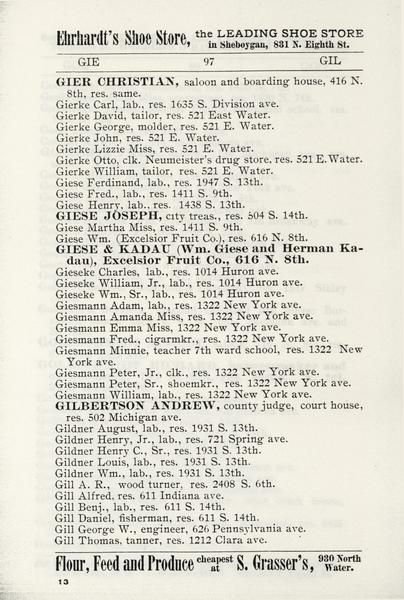 Ehrhardt's Shoe Store, the LEADING SHOE STORE
in Sheboygan, 831 N. Eighth St.
GIE 97 GIL
GIER CHRISTIAN, saloon and boarding house, 416 N.
8th, res. same.
Gierke Carl, lab., res. 1635 S. Division ave.
Gierke David, tailor, res. 521 East Water.
Gierke George, molder, res. 521 E. Water.
Gierke John, res. 521 E. Water.
Gierke Lizzie Miss, res. 521 E. Water.
Gierke Otto, clk. Neumeister's drug store, res. 521 E. Water.
Gierke William, tailor, res. 521 E. Water.
Giese Ferdinand, lab., res. 1947 S. 13th.
Giese Fred., lab., res. 1411 S. 9th.
Giese Henry, lab., res. 1438 S. 13th.
GIESE JOSEPH, city treas., res. 504 S. 14th.
Giese Martha Miss, res. 1411 S. 9th.
Giese Wm. (Excelsior Fruit Co.), res. 616 N. 8th.
GIESE & KADAU (Wm. Giese and Herman Ka-
dau), Excelsior Fruit Co., 616 N. 8th.
Gieseke Charles, lab., res. 1014 Huron ave.
Gieseke William, Jr., lab., res. 1014 Huron ave.
Gieseke Wm., Sr., lab., res. 1014 Huron ave.
Giesmann Adam, lab., res. 1322 New York ave.
Giesmann Amanda Miss, res. 1322 New York ave.
Giesmann Emma Miss, 1322 New York ave.
Giesmann Fred., cigarmkr., res. 1322 New York ave.
Giesmann Minnie, teacher 7th ward school, res. 1322 New
York ave.
Giesmann Peter, Jr., clk., res. 1322 New York ave.
Giesmann Peter, Sr., shoemkr., res. 1322 New York ave.
Giesmann William, lab., res. 1322 New York ave.
GILBERTSON ANDREW, county judge, court house,
res. 502 Michigan ave.
Gildner August, lab., res. 1931 S. 13th.
Gildner Henry, Jr., lab., res. 721 Spring ave.
Gildner Henry C., Sr., res. 1931 S. 13th.
Gildner Louis, lab., res. 1931 S. 13th.
Gildner Wm., lab., res. 1931 S. 13th.
Gill A. R., wood turner, res. 2408 S. 6th.
Gill Alfred, res. 611 Indiana ave.
Gill Benj., lab., res. 611 S. 14th.
Gill Daniel, fisherman, res. 611 S. 14th.
Gill George W., engineer, 626 Pennsylvania ave.
Gill Thomas, tanner, res. 1212 Clara ave.
Flour, Feed and Produce cheapest at S. Grasser's, 930 North Water.
13